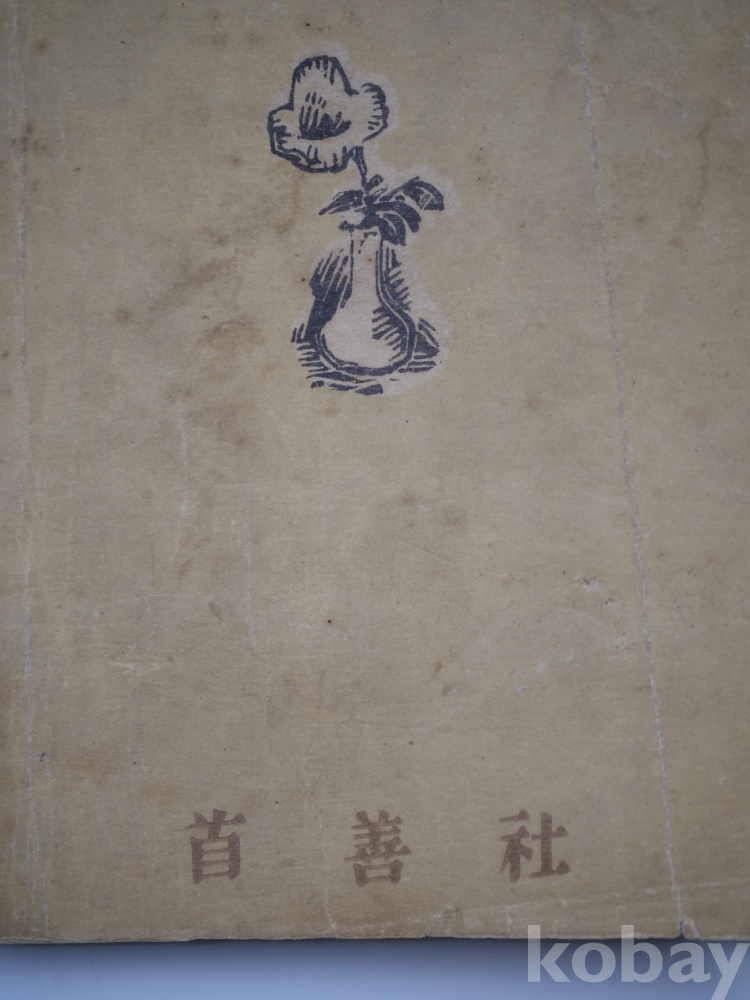 首善社
kobay